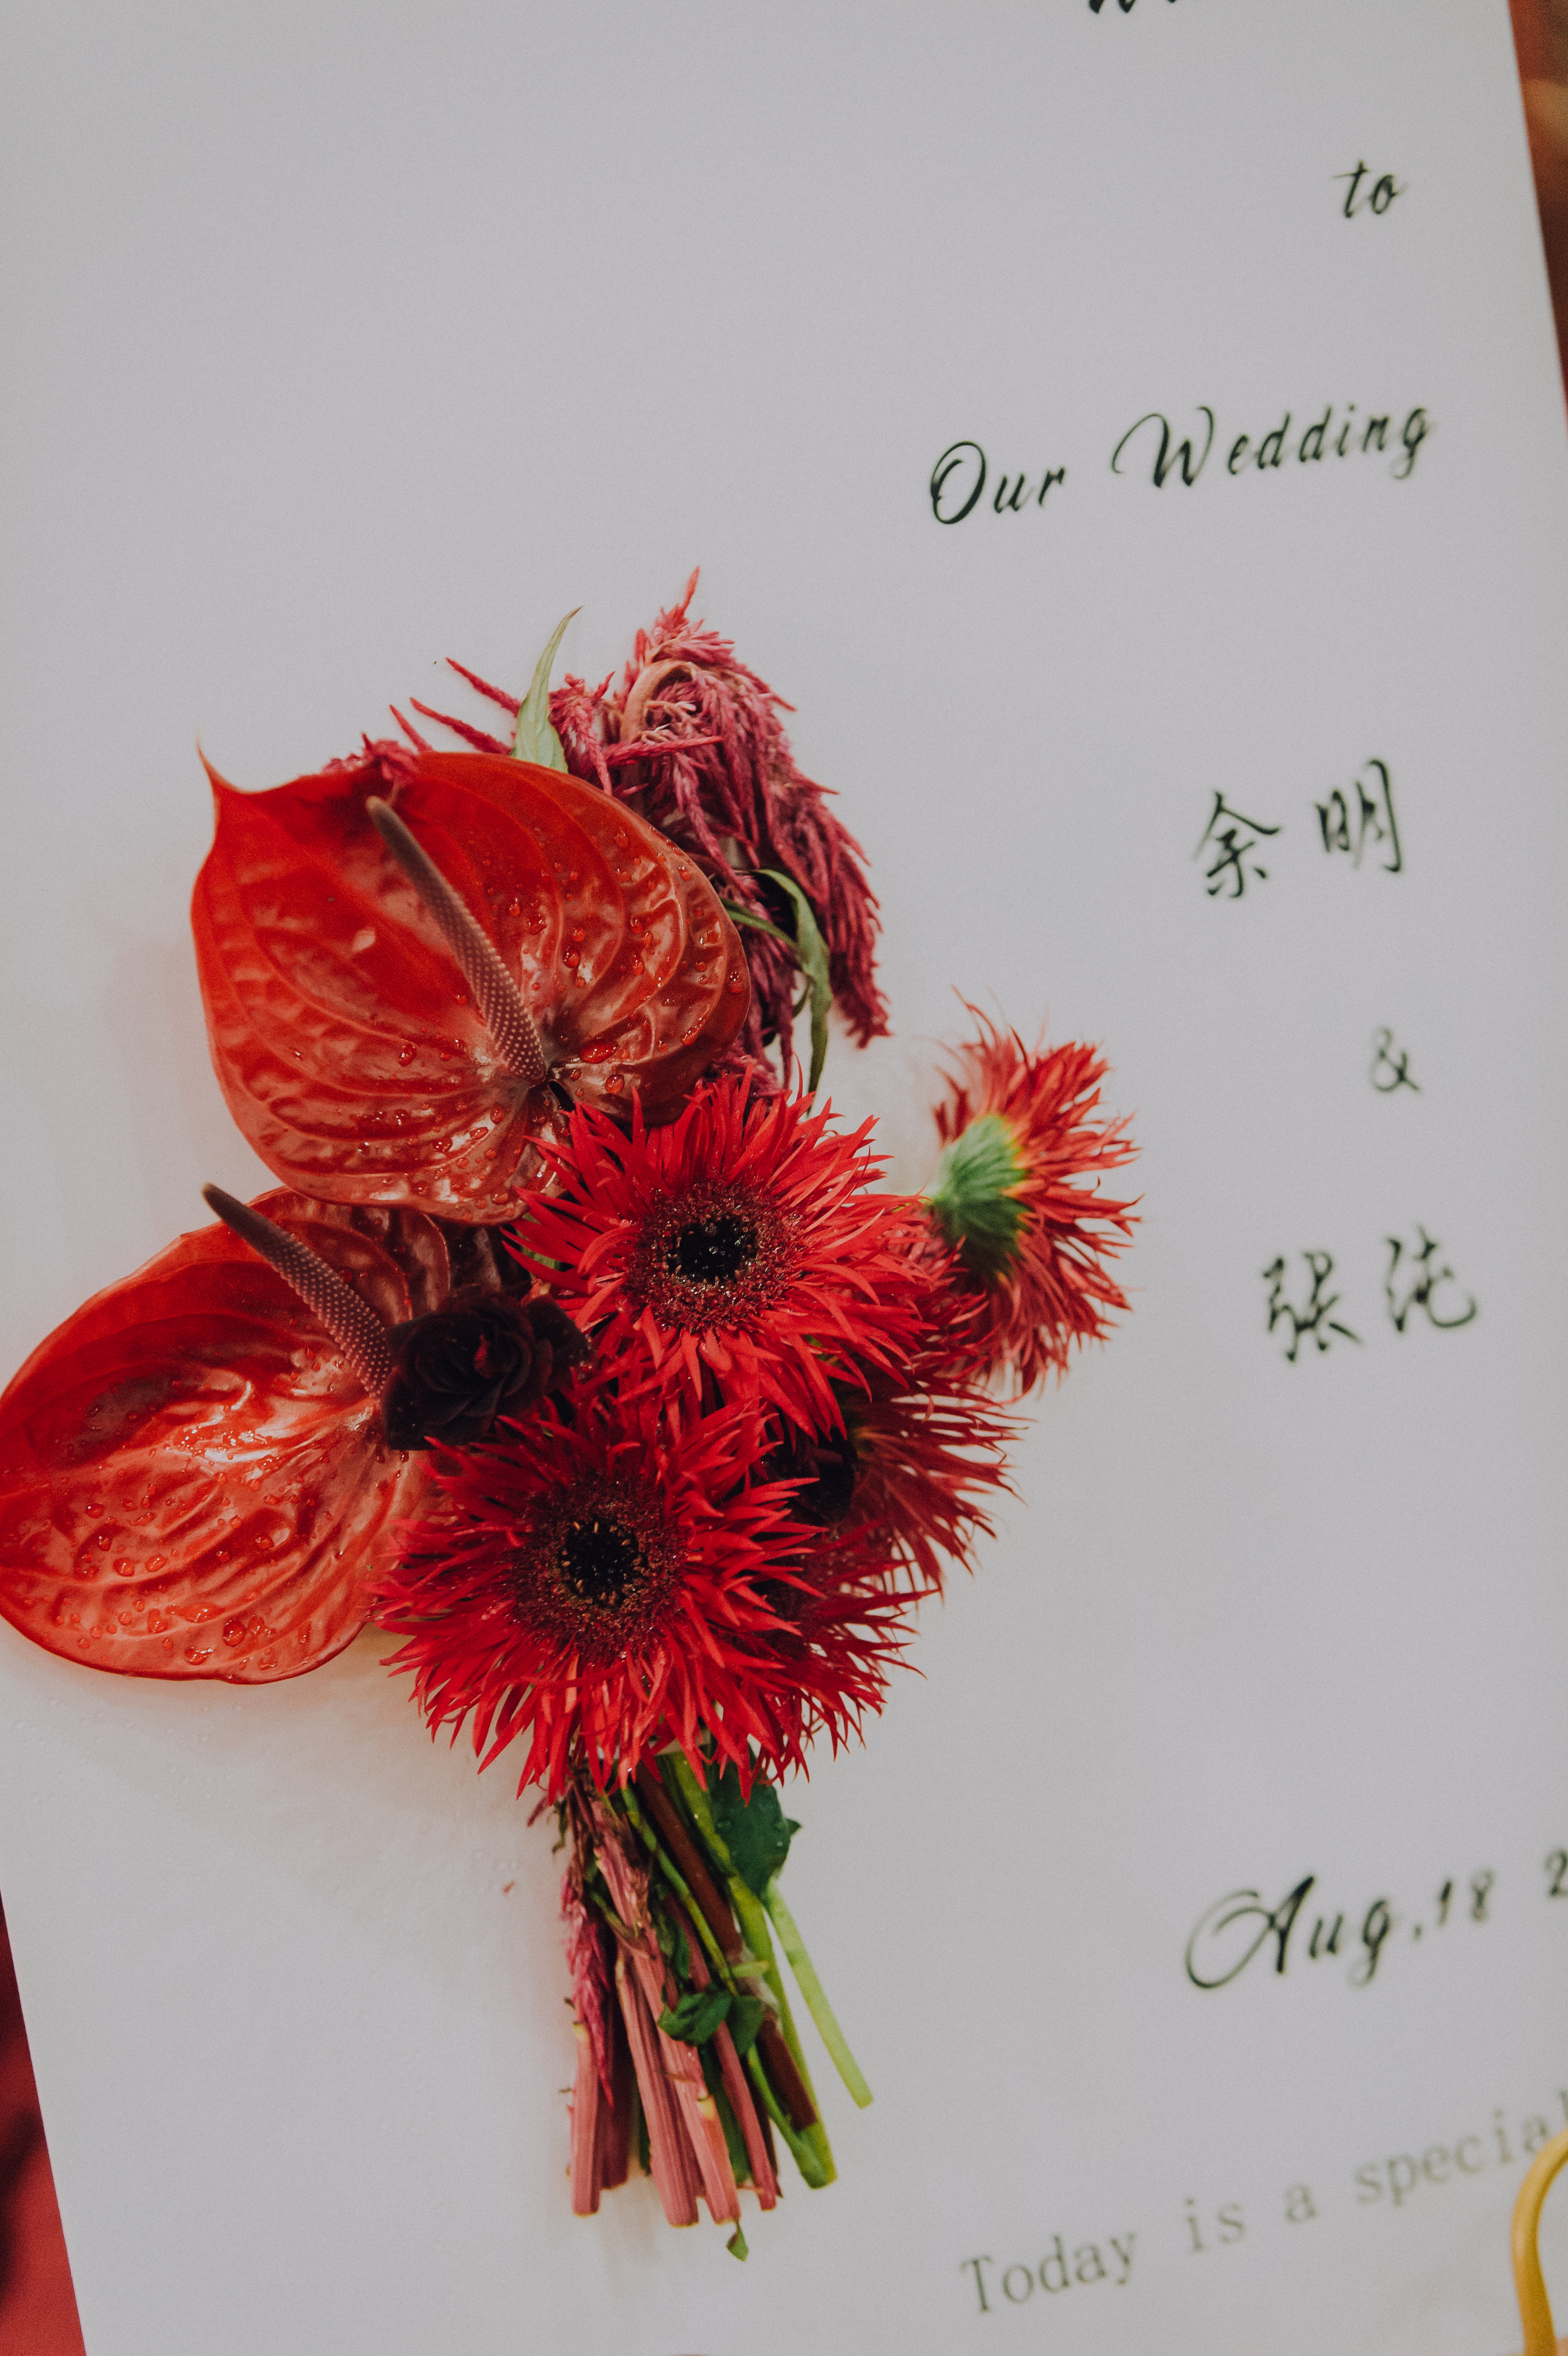 to
Our Wedding
余明
&
张纯
Aug,18
Today is a special